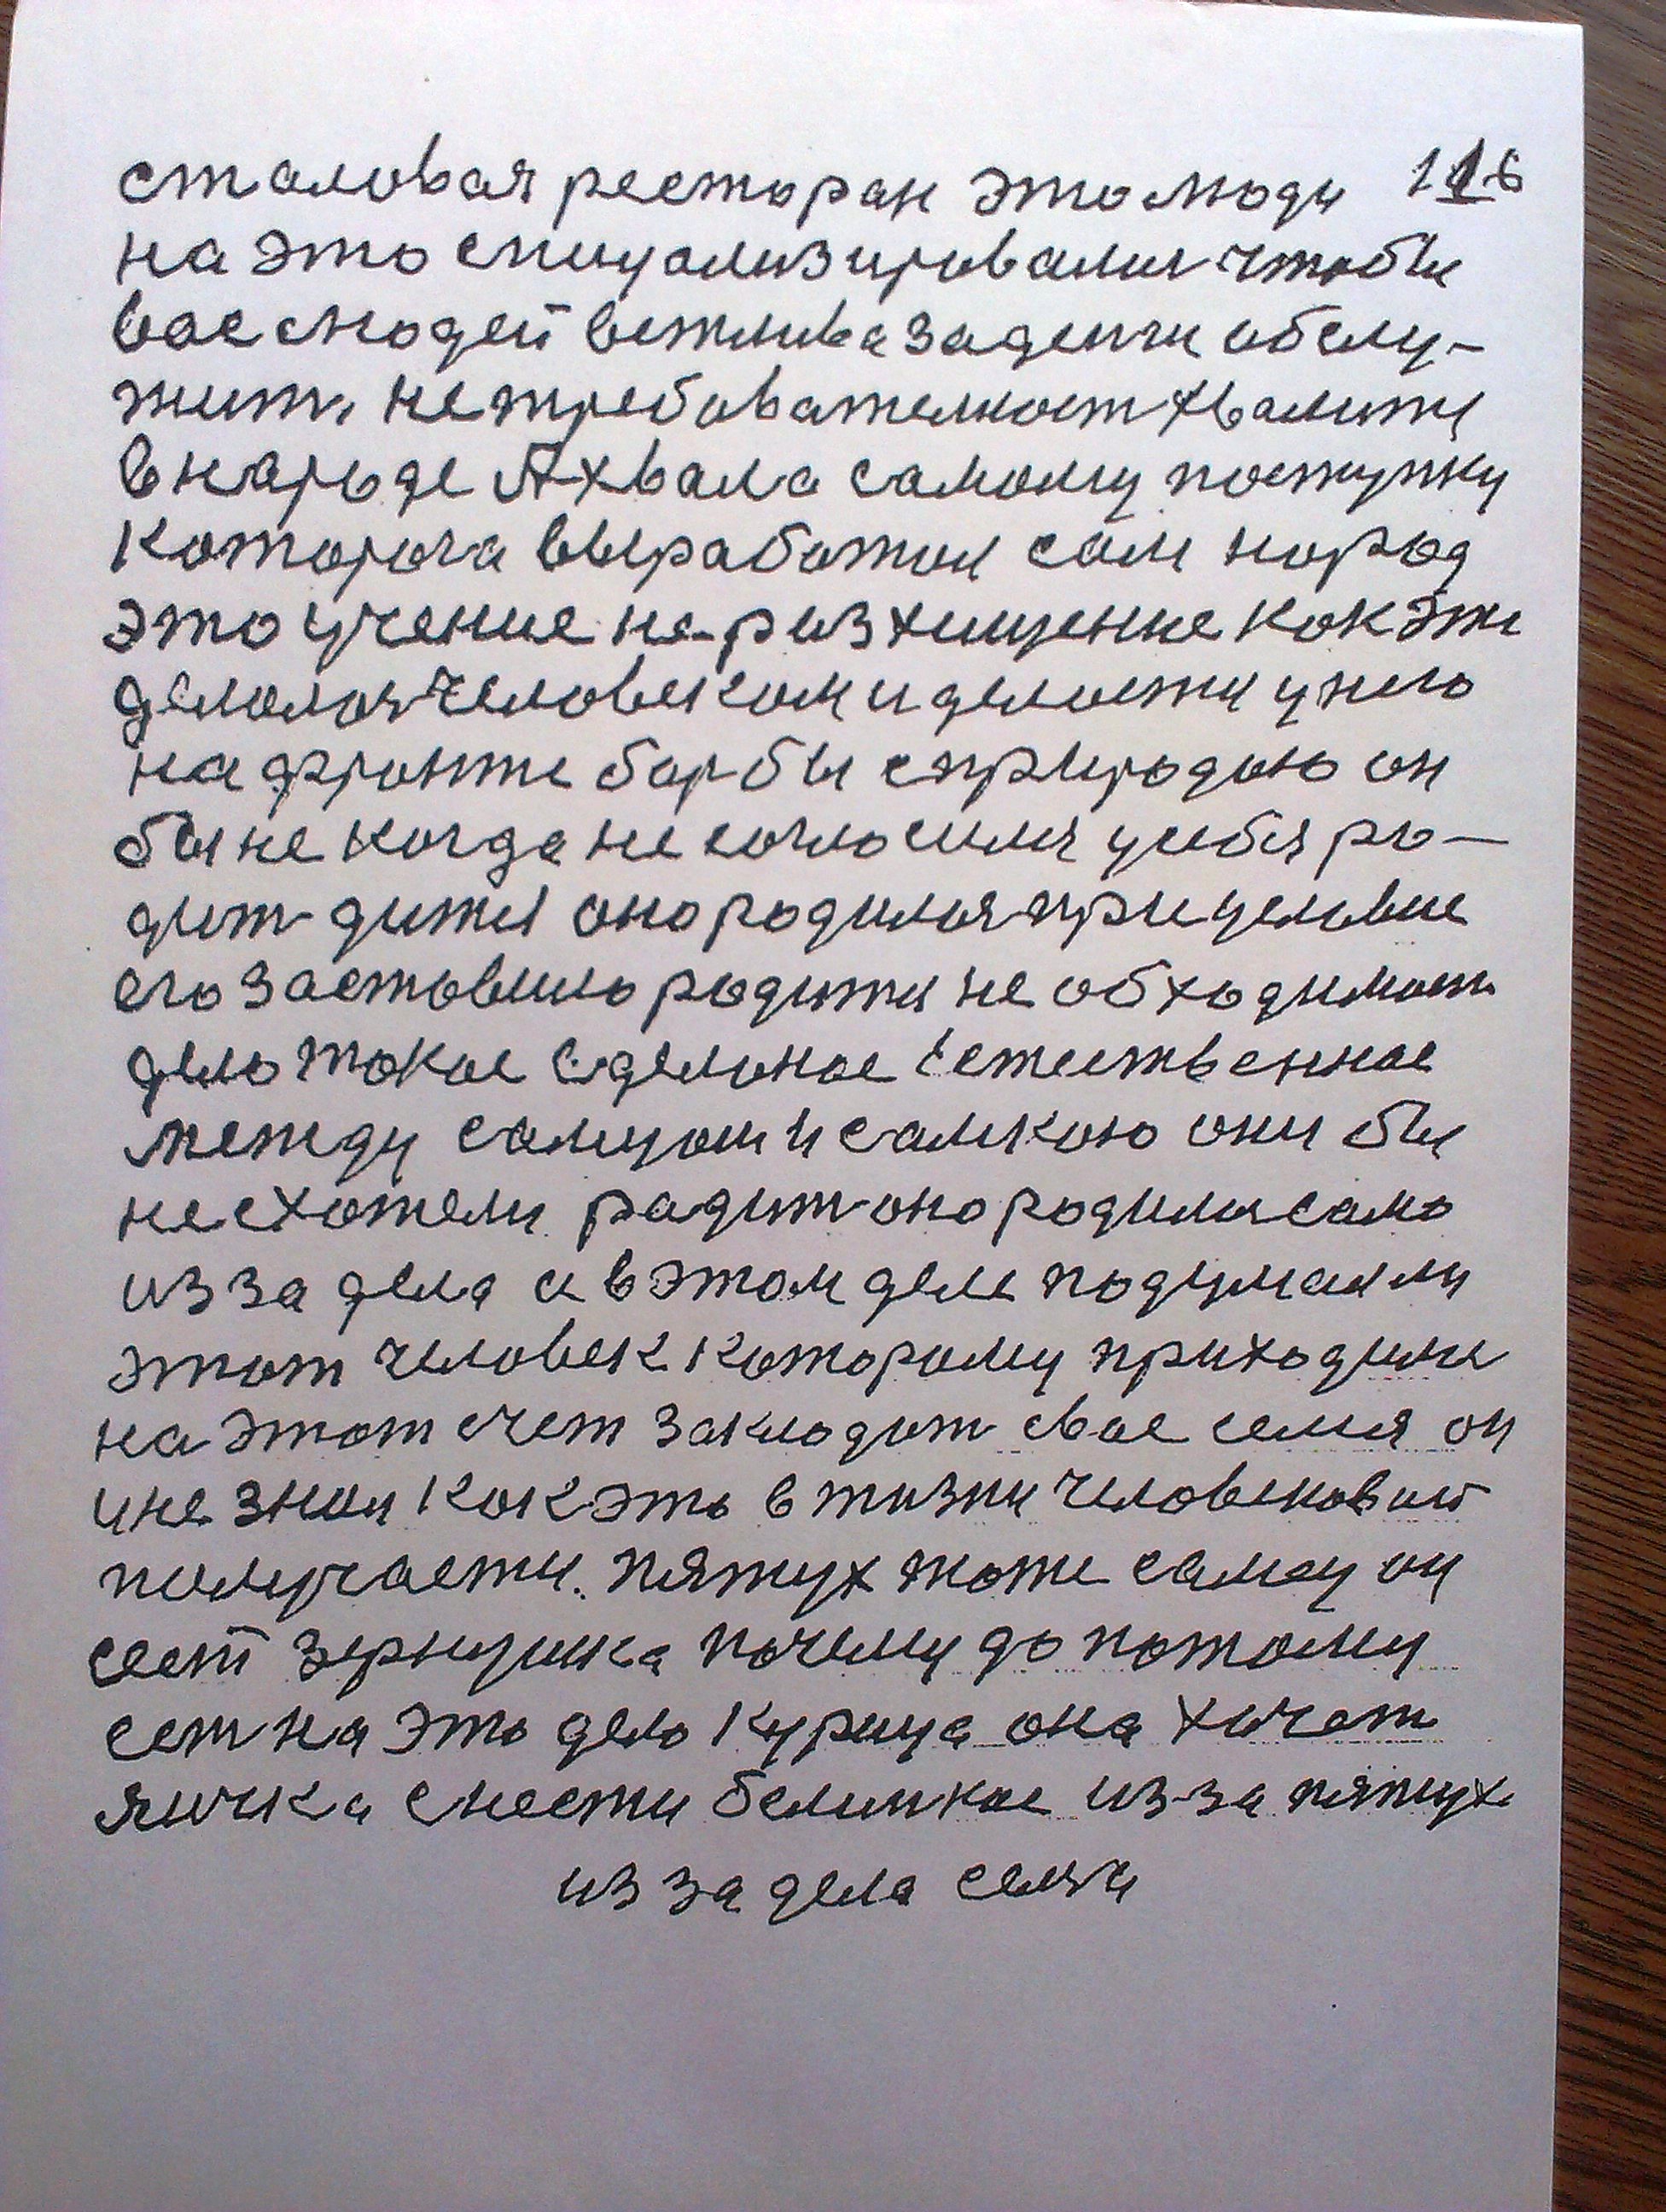 сталовая ресторан это люди 116
на это спицализировалис чтобы
вас людей вежлива заденги обслу-
жит, нетребователност хвалити
в народе А хвала самому поступку
которога выработал сам народ
это учение не-разхищение как эти
делолоя человеком и делаети у него
на фронте борбы сприродою он
бы не когда не согласился у себя ро-
дит дитя оно родилоя при условие
его заставило родити не обходимост
дело такое сделоное естественное
между самцом и самкою они бы
несхотели радит оно родилис само
из за дела а в этом деле подумал ли
этот человек которому приходили
на этот счет закладот свае семя он
и не знал как это в жизни человековий
получаети. пятух тоже самец он
сеет зернушка почему до потому
ест на это дело курица она хичет
яичка снести белинкое из-за пятуха
из за дела семги